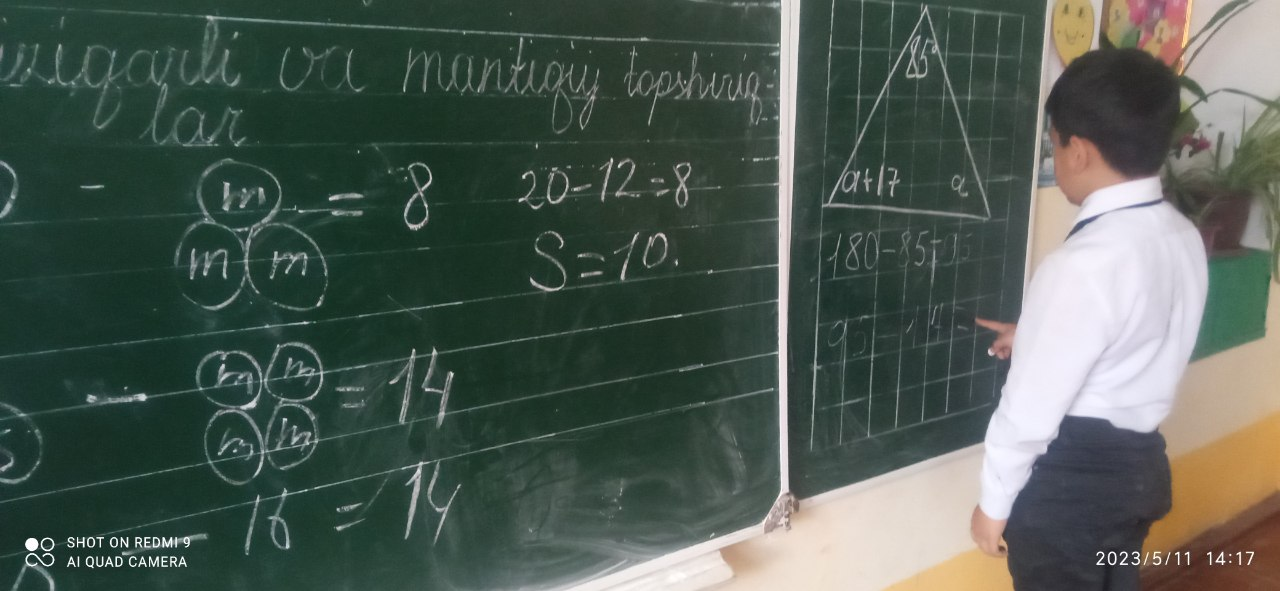 ziqarli va mantiqiy topshiriq-
lar
- m = 8
m m
20-12=8
S=10.
- m m = 14
m m
- 16 = 14
85°
a+17 a
180-85=95
95-17=
SHOT ON REDMI 9
AI QUAD CAMERA
2023/5/11 14:17